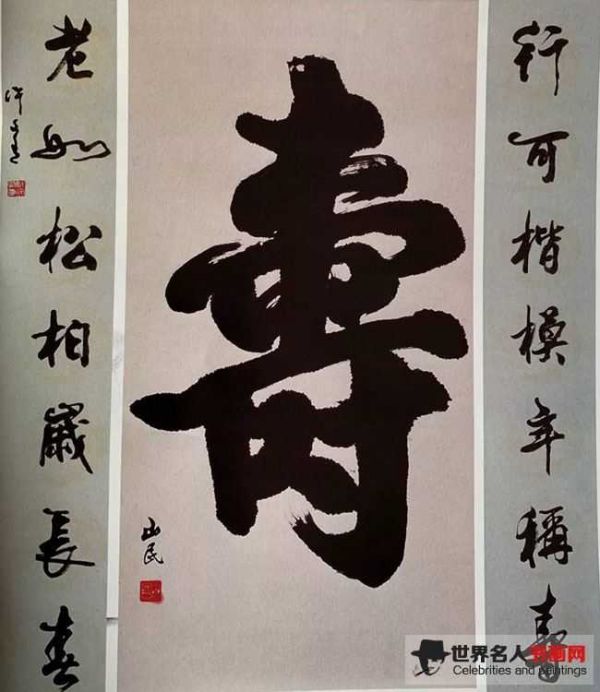 行可楷模年稱壽
壽
山民
老如松柏歲長春
世界名人书画网
Celebrities and paintings